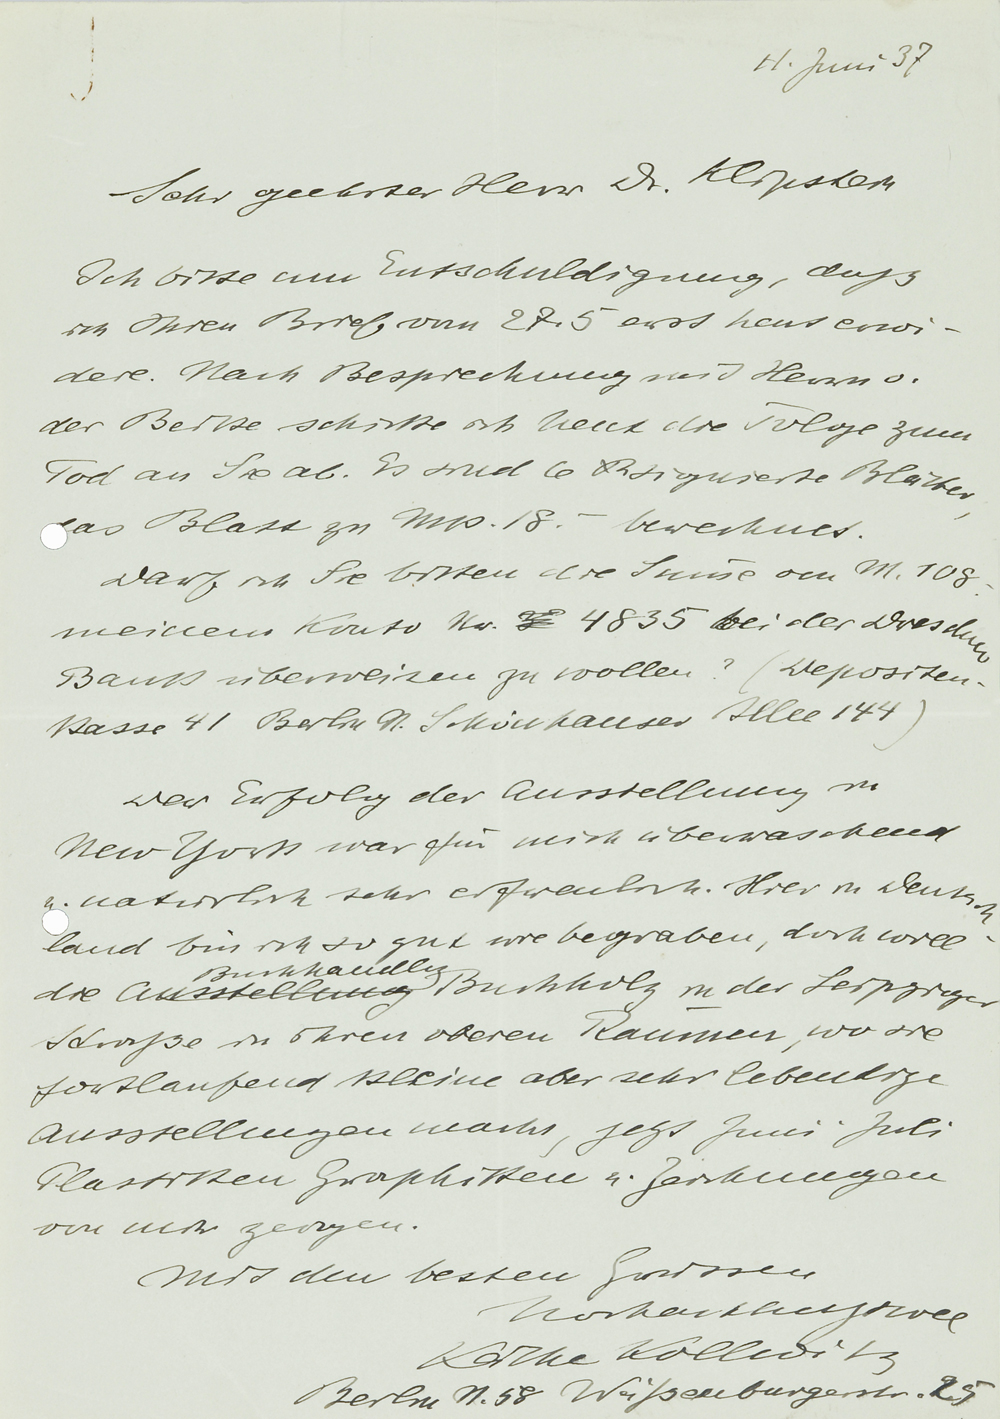 11. Juni 37
Sehr geehrter Herr Dr. Klipstein
Ich bitte um Entschuldigung, dass
ich Ihren Brief vom 27.5 erst heut erwi-
dere. Nach Besprechung mit Herrn v.
der Becke schicke ich heut die Folge zum
Tod an Sie ab. Es sind 6 signierte Blätter,
das Blatt zu Mk. 18.- berechnet.
Darf ich Sie bitten die Summe von M. 108.-
meinem Konto Nr. 4835 bei der Dresdner
Bank überweisen zu wollen? (Depositen-
kasse 41 Berlin N. Schönhauser Allee 144)
Der Erfolg der Ausstellung in
New York war für mich überraschend
u. natürlich sehr erfreulich. Hier in Deutsch-
land bin ich so gut wie begraben, doch will
Buchhandlg
die Ausstellung Buchholz in der Leipziger
Straße in ihren oberen Räumen, wo sie
fortlaufend kleine aber sehr lebendige
Ausstellungen macht, jetzt Juni-Juli
Plastiken Graphiken u. Zeichnungen
von mir zeigen.
Mit den besten Grüssen
hochachtungsvoll
Käthe Kollwitz
Berlin N. 58 Weißenburgerstr. 25